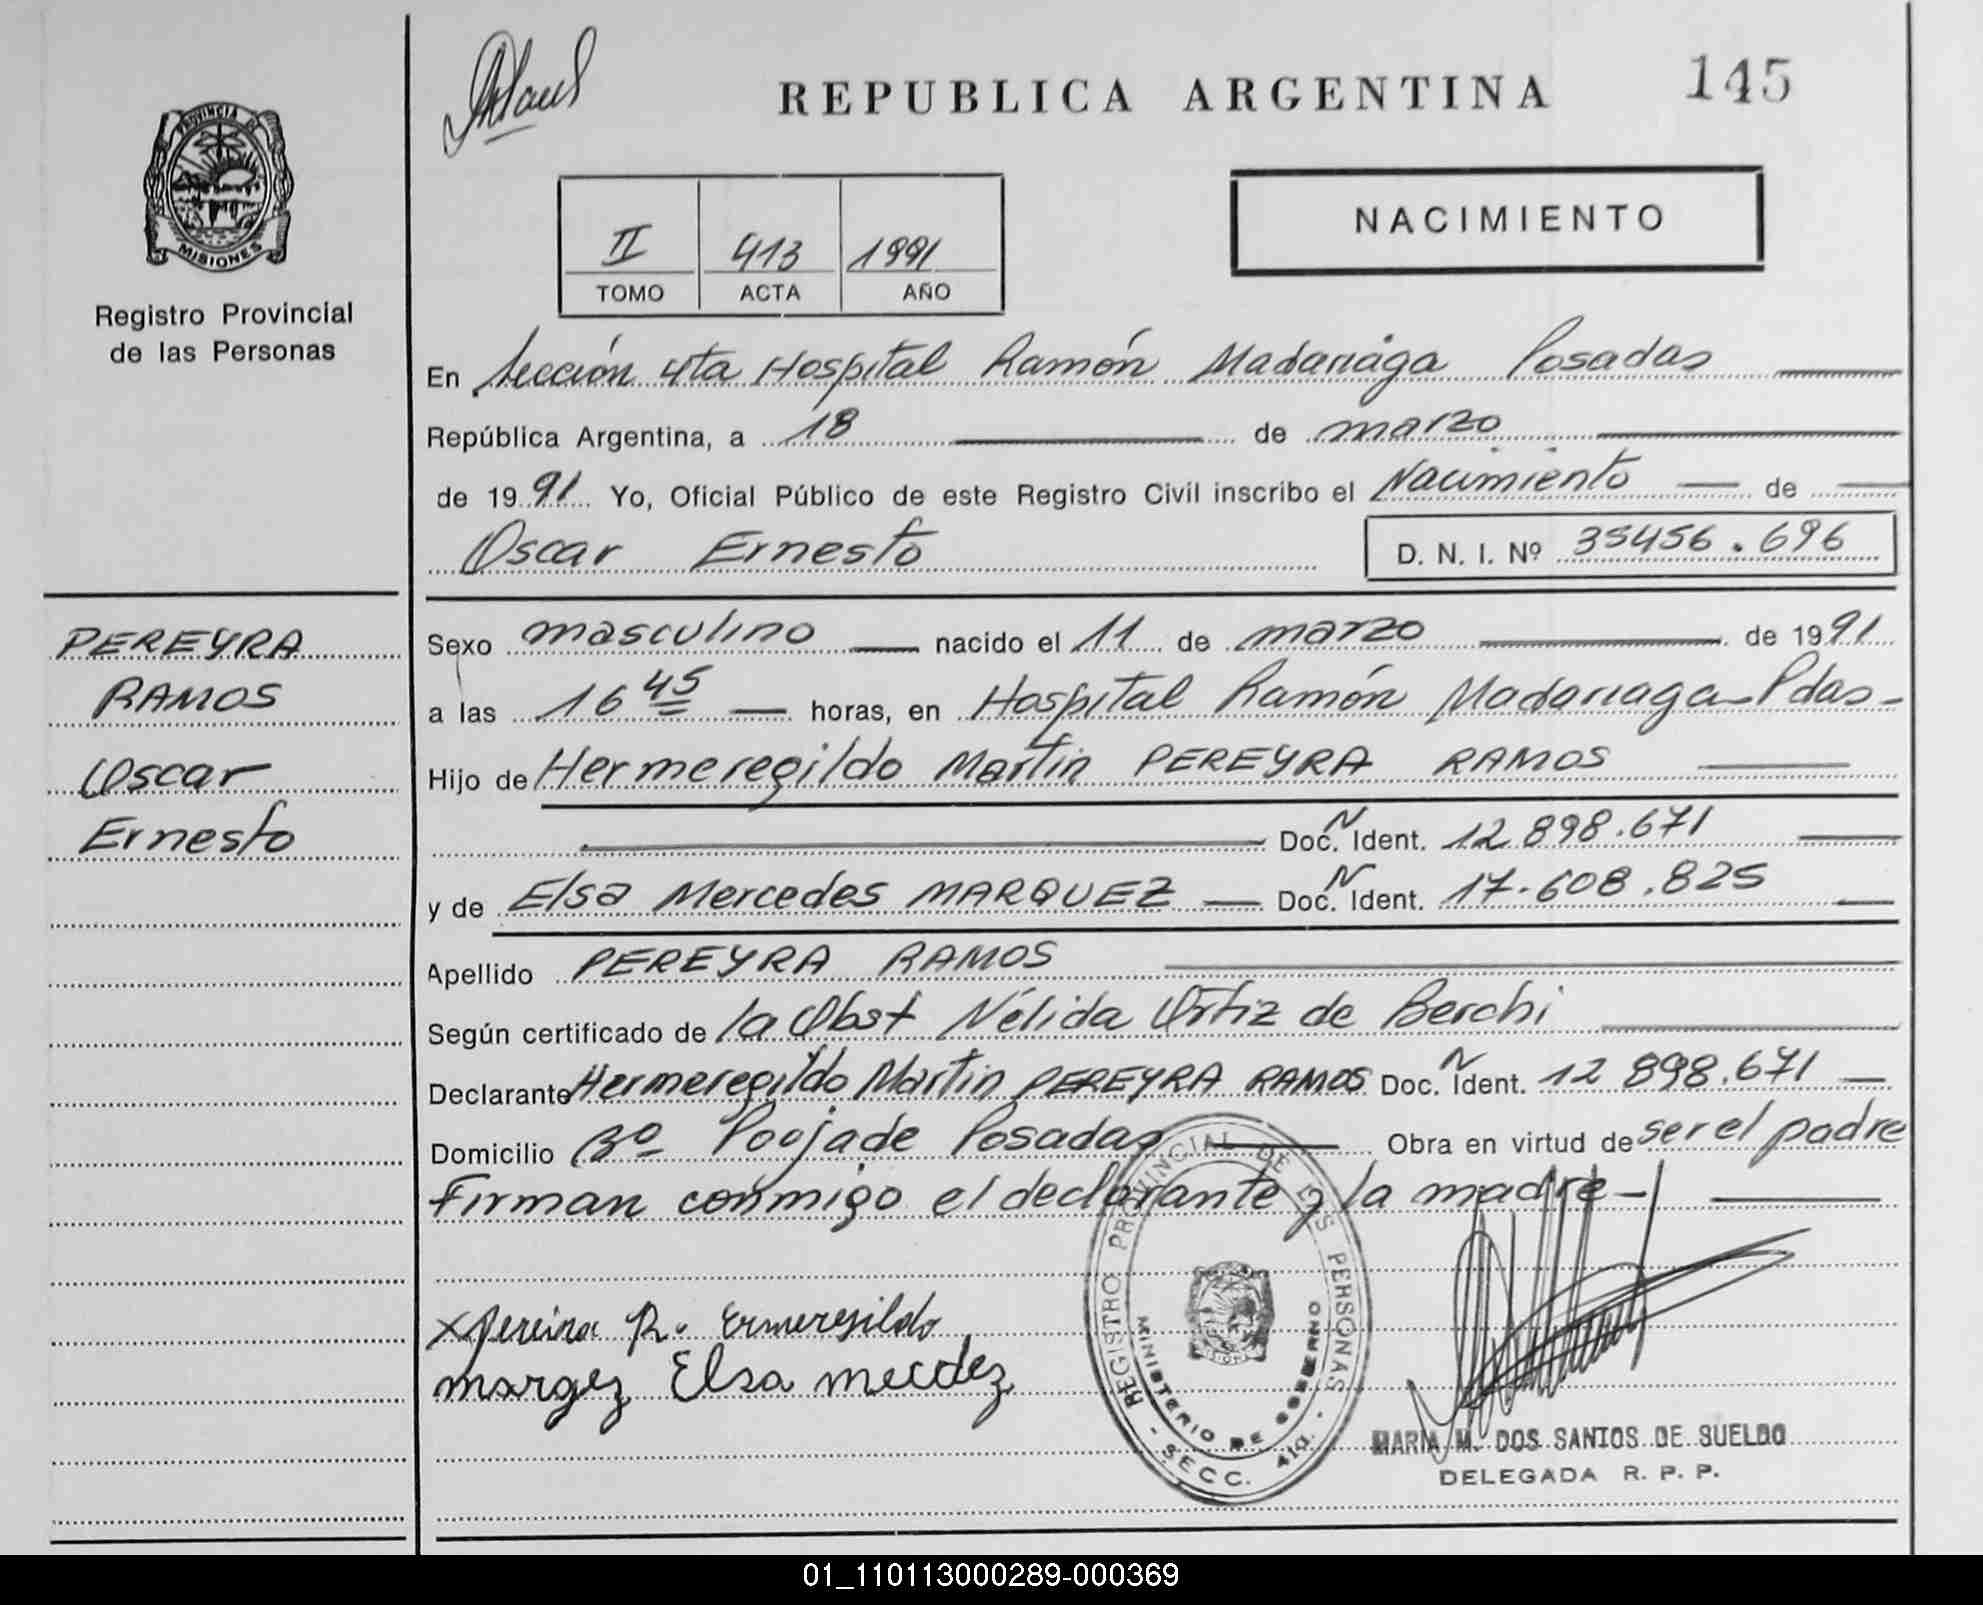 145
REPUBLICA ARGENTINA
PROVINCIA DE
MISIONES
Registro Provincial
de las Personas
NACIMIENTO
II 413 1991
TOMO ACTA AÑO
En Sección 4ta Hospital Ramón Madariaga Posadas
República Argentina, a 18 de marzo
de 1991 Yo, Oficial Público de este Registro Civil inscribo el Nacimiento de
Oscar Ernesto D. N. I. Nº 35456.696
PEREYRA
RAMOS
Oscar
Ernesto
Sexo masculino nacido el 11 de marzo de 1991
a las 16 45 horas, en Hospital Ramón Madariaga-Pdas-
Hijo de Hermeregildo Martin PEREYRA RAMOS
Doc. N Ident. 12.898.671
y de Elsa Mercedes MARQUEZ Doc. N Ident. 17.608.825
Apellido PEREYRA RAMOS
Según certificado de la Obst Nélida Ortiz de Berchi
Declarante Hermeregildo Martin PEREYRA RAMOS Doc. N Ident. 12 898.671
Domicilio Bº Poujade Posadas Obra en virtud de ser el padre
Firman conmigo el declarante y la madre-
x Pereira R. Ermeregildo
margez Elsa mercdez
REGISTRO PROVINCIAL DE LAS PERSONAS
MINISTERIO DE GOBIERNO
- SECC. 4ta. -
MISIONES
MARIA M. DOS SANTOS DE SUELDO
DELEGADA R. P. P.
01_110113000289-000369